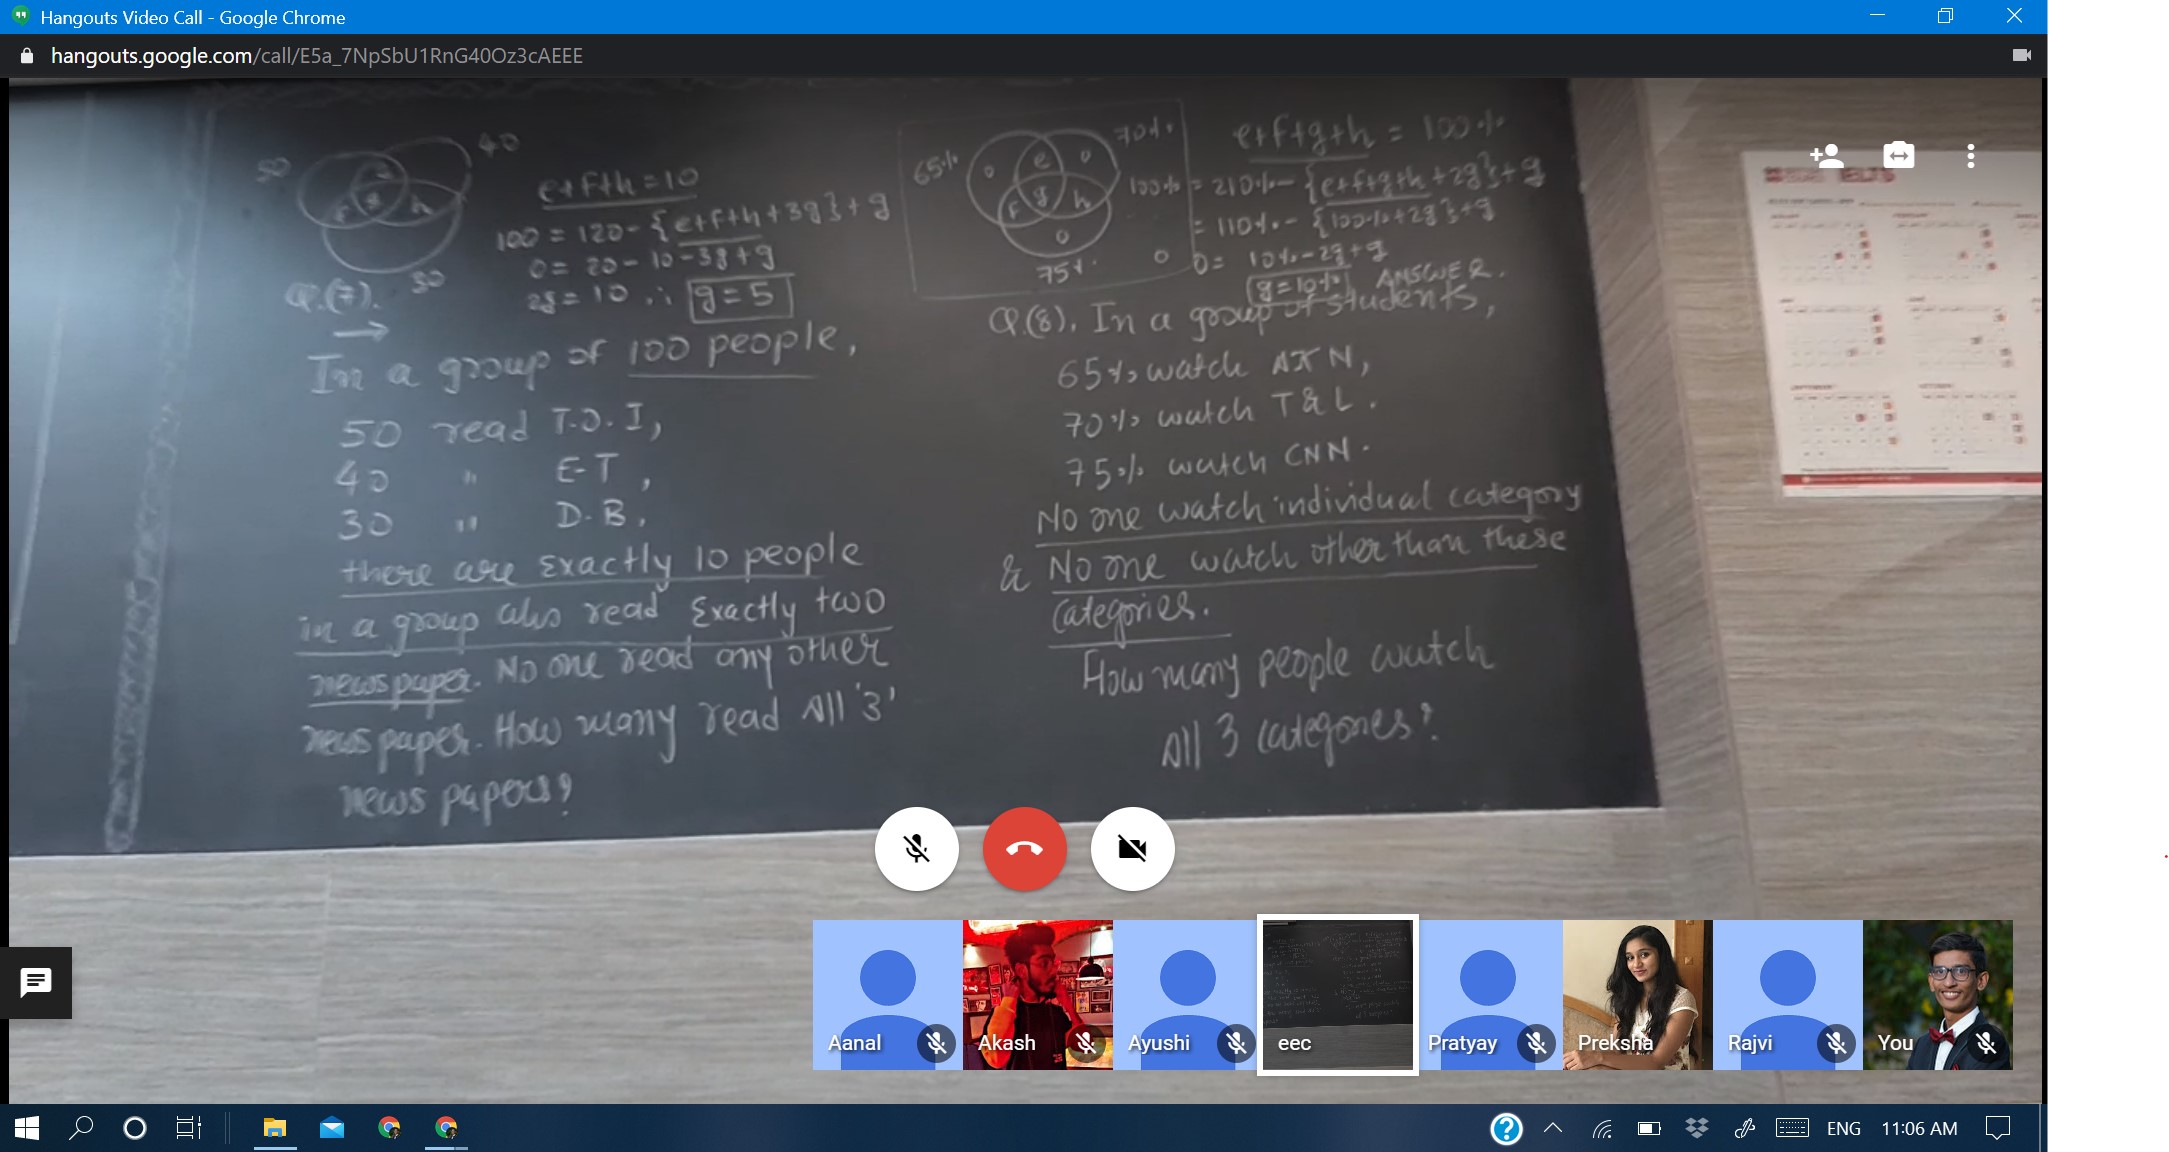 Hangouts Video Call - Google Chrome
hangouts.google.com/call/E5a_7NpSbU1RnG40Oz3cAEEE
50
40
30
e
f
g
h
e+f+h=10
100 = 120-{e+f+h+3g}+g
0= 20-10-3g+g
2g=10 ∴ g=5
Q.(7).
In a group of 100 people,
50 read T.O.I,
40 " E-T,
30 " D-B,
there are Exactly 10 people
in a group also read Exactly two
newspaper. No one read any other
newspaper. How many read All '3'
newspapers?
65%
70%
75%
0
e
0
f
g
h
0
0
e+f+g+h = 100%
100% = 210%-{e+f+g+h+2g}+g
= 110%-{100%+2g}+g
0= 10%-2g+g
g=10% ANSWER.
Q.(8). In a group of students,
65% watch AXN,
70% watch T&L.
75% watch CNN.
No one watch individual category
& No one watch other than these
categories.
How many people watch
All 3 categories?
Aanal
Akash
Ayushi
eec
Pratyay
Preksha
Rajvi
You
ENG
11:06 AM